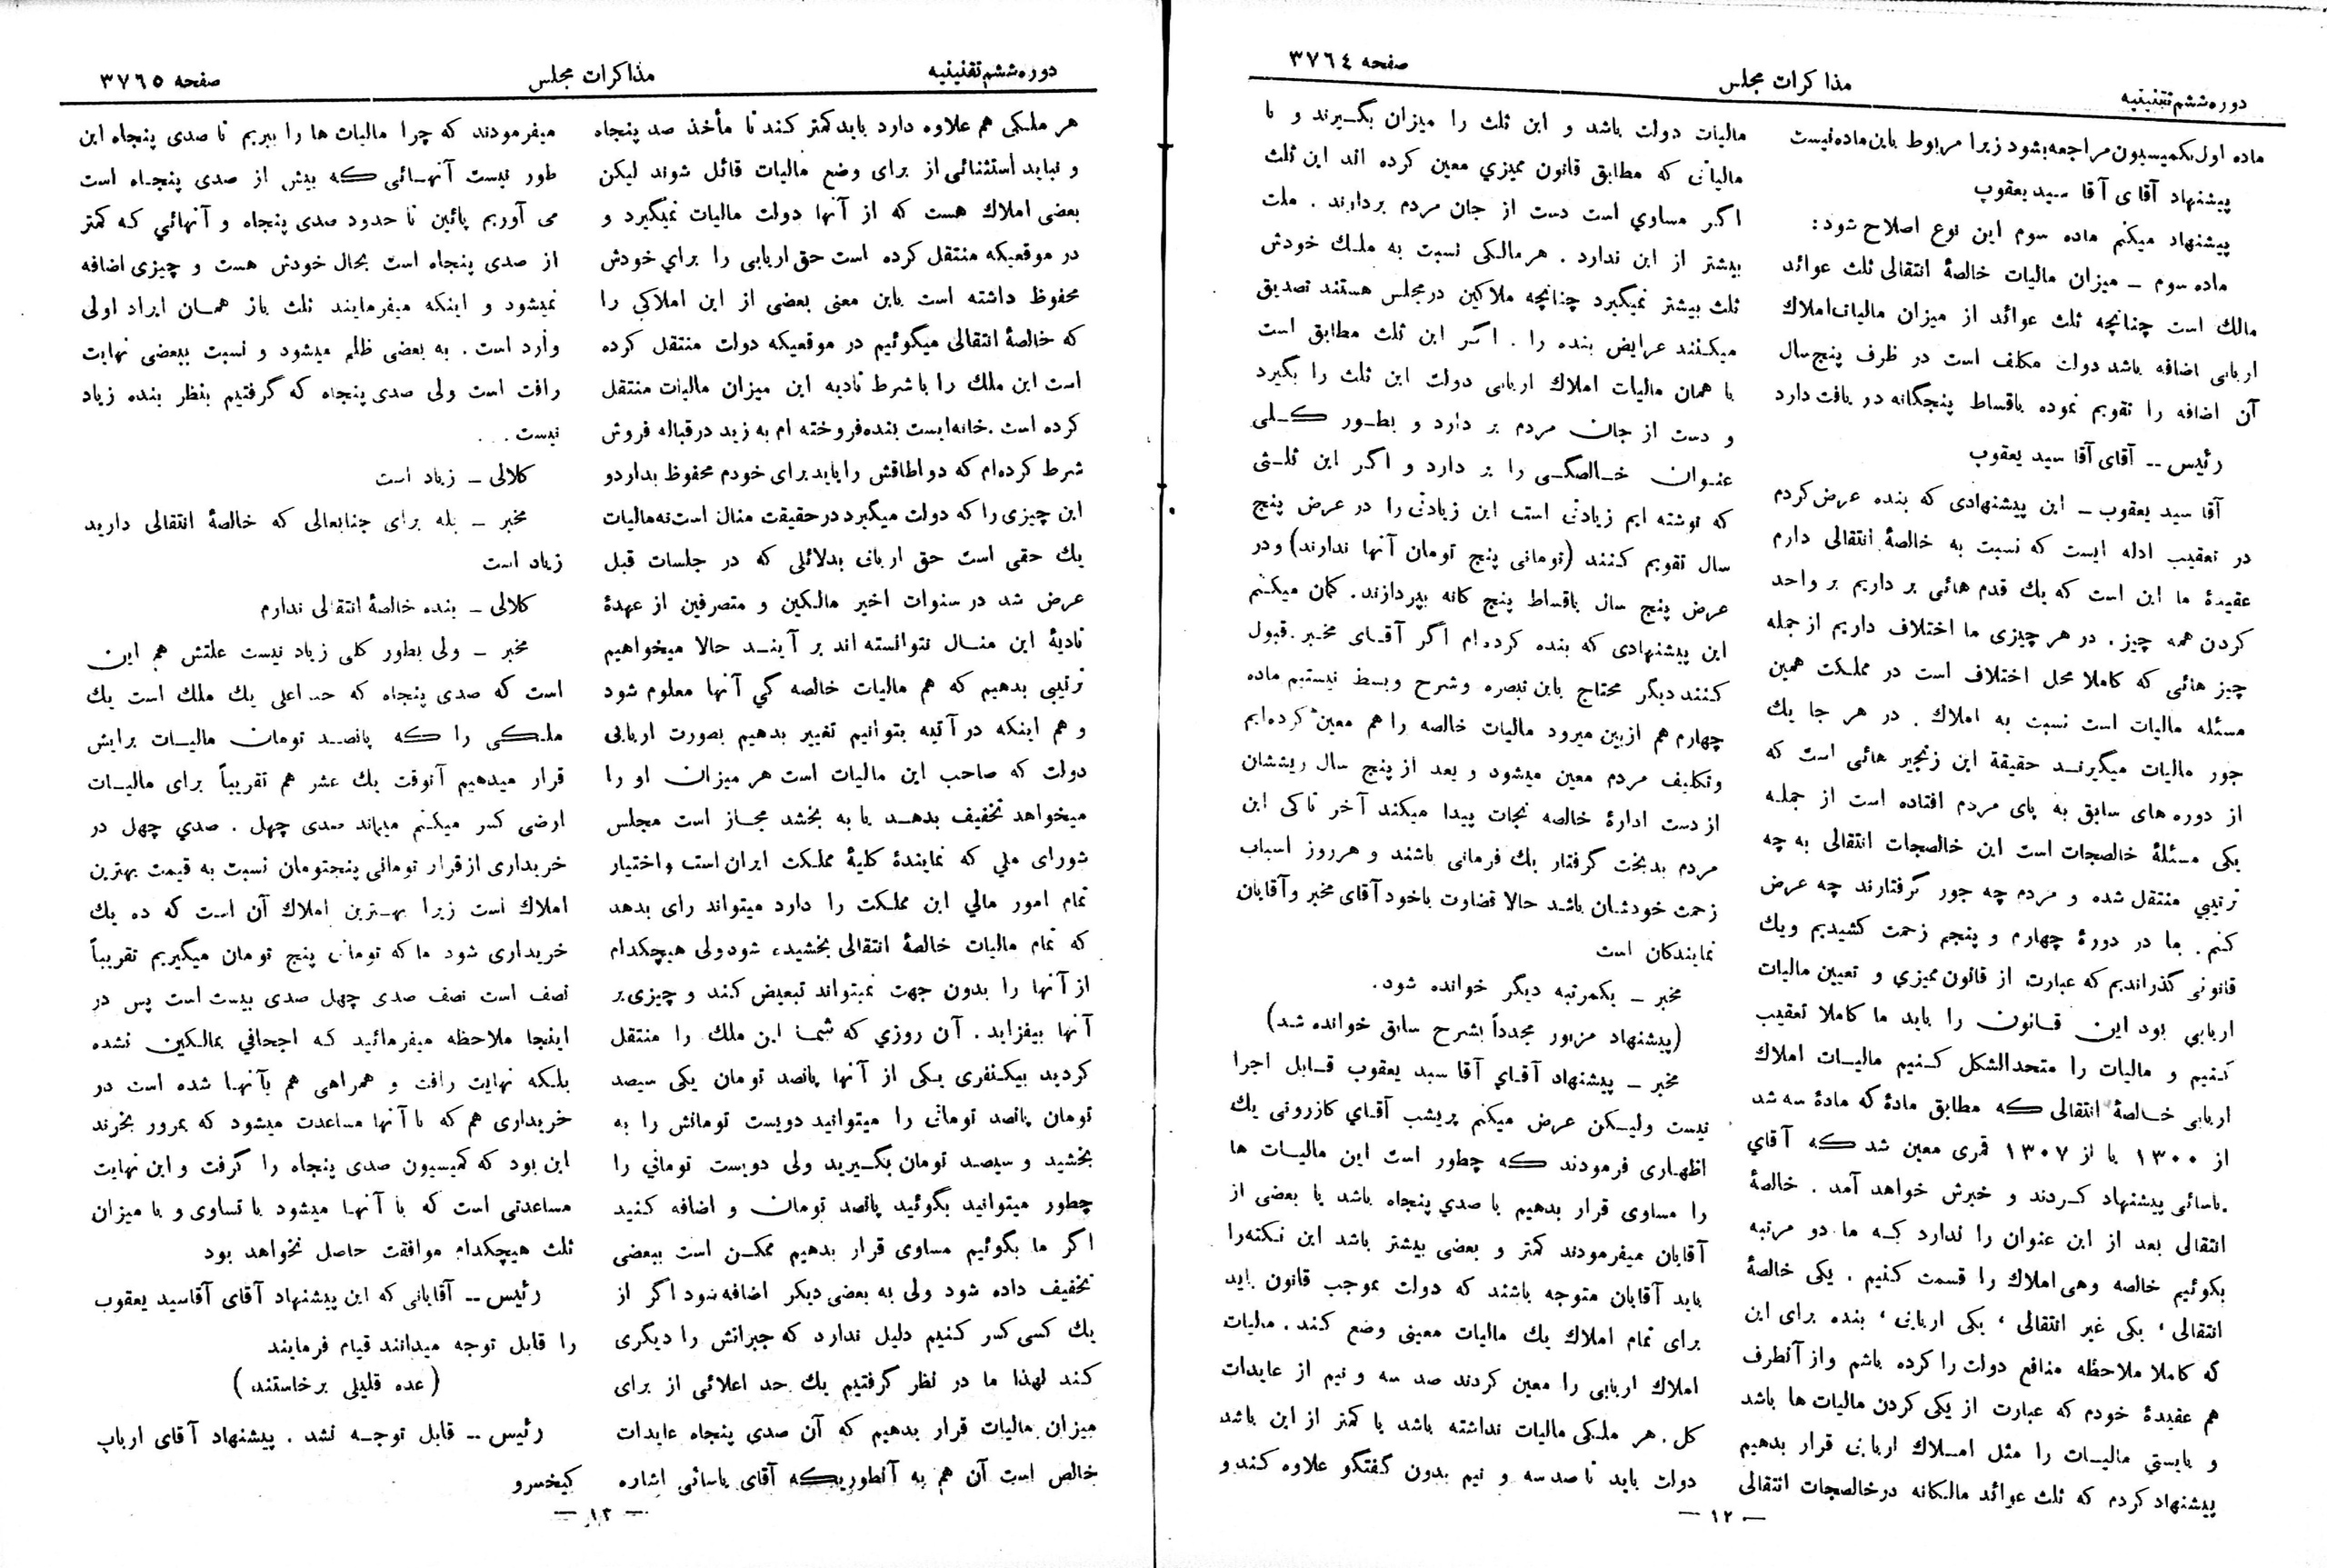 صفحه ٣٧٦٤
مذاکرات مجلس
دوره ششم تقنینیه
ماده اول بکمیسیون مراجعه بشود زیرا مربوط باین ماده نیست
پیشنهاد آقای آقا سید یعقوب
پیشنهاد میکنم ماده سوم این نوع اصلاح شود:
ماده سوم – میزان مالیات خالصهٔ انتقالی ثلث عوائد
مالك است چنانچه ثلث عوائد از میزان مالیات املاك
اربابی اضافه باشد دولت مکلف است در ظرف پنج سال
آن اضافه را تقویم نموده باقساط پنجگانه دریافت دارد
رئیس -- آقای آقا سید یعقوب
آقا سید یعقوب – این پیشنهادی که بنده عرض کردم
در تعقیب ادله ایست که نسبت به خالصهٔ انتقالی دارم
عقیدهٔ ما این است که یك قدم هائی بر داریم بر واحد
کردن همه چیز . در هر چیزی ما اختلاف داریم از جمله
چیز هائی که کاملا محل اختلاف است در مملکت همین
مسئله مالیات است نسبت به املاك . در هر جا یك
جور مالیات میگیرند حقیقة این زنجیر هائی است که
از دوره های سابق به پای مردم افتاده است از جمله
یکی مسئلهٔ خالصجات است این خالصجات انتقالی به چه
ترتیبي منتقل شده و مردم چه جور گرفتارند چه عرض
کنم . ما در دورهٔ چهارم و پنجم زحمت کشیدیم ویك
قانونی گذراندیم که عبارت از قانون ممیزي و تعیین مالیات
اربابي بود این قانون را باید ما کاملا تعقیب
کنیم و مالیات را متحدالشکل کنیم مالیات املاك
اربابی خالصهٔ انتقالی که مطابق مادهٔ که مادهٔ سه شد
از ١٣٠٠ یا از ١٣٠٧ قمری معین شد که آقاي
یاسائی پیشنهاد کردند و خبرش خواهد آمد . خالصهٔ
انتقالی بعد از این عنوان را ندارد که ما دو مرتبه
بگوئیم خالصه وهی املاك را قسمت کنیم . یکی خالصهٔ
انتقالی ، یکی غیر انتقالی ، یکی اربابی ، بنده برای این
که کاملا ملاحظه منافع دولت را کرده باشم واز آنطرف
هم عقیدهٔ خودم که عبارت از یکی کردن مالیات ها باشد
و بایستي مالیات را مثل املاك اربابی قرار بدهیم
پیشنهاد کردم که ثلث عوائد مالکانه در خالصجات انتقالی
مالیات دولت باشد و این ثلث را میزان بگیرند و تا
مالیاتی که مطابق قانون ممیزي معین کرده اند این ثلث
اگر مساوي است دست از جان مردم بردارند . ملت
بیشتر از این ندارد . هر مالکی نسبت به ملك خودش
ثلث بیشتر نمیگیرد چنانچه ملاکین در مجلس هستند تصدیق
میکنند عرایض بنده را . اگر این ثلث مطابق است
با همان مالیات املاك اربابی دولت این ثلث را بگیرد
و دست از جان مردم بر دارد و بطور کلی
عنوان خالصگی را بر دارد و اگر این ثلثی
که نوشته ایم زیادتی است این زیادتی را در عرض پنج
سال تقویم کنند (تومانی پنج تومان آنها ندارند) و در
عرض پنج سال باقساط پنج گانه بپردازند. گمان میکنم
این پیشنهادی که بنده کرده ام اگر آقای مخبر قبول
کنند دیگر محتاج باین تبصره وشرح وبسط نیستیم ماده
چهارم هم ازبین میرود مالیات خالصه را هم معین کرده ایم
وتکلیف مردم معین میشود و بعد از پنج سال ریششان
از دست ادارهٔ خالصه نجات پیدا میکند آخر تا کی این
مردم بدبخت گرفتار یك فرمانی باشند و هرروز اسباب
زحمت خودشان باشد حالا قضاوت باخود آقای مخبر وآقایان
نمایندگان است
مخبر – یکمرتبه دیگر خوانده شود.
(پیشنهاد مزبور مجدداً بشرح سابق خوانده شد)
مخبر – پیشنهاد آقاي آقا سید یعقوب قابل اجرا
نیست ولیکن عرض میکنم پریشب آقاي کازرونی یك
اظهاری فرمودند که چطور است این مالیات ها
را مساوی قرار بدهیم با صدي پنجاه باشد یا بعضی از
آقایان میفرمودند کمتر و بعضی بیشتر باشد این نکته را
باید آقایان متوجه باشند که دولت بموجب قانون باید
برای تمام املاك یك مالیات معینی وضع کند . مالیات
املاك اربابی را معین کردند صد سه و نیم از عایدات
کل . هر ملکی مالیات نداشته باشد یا کمتر از این باشد
دولت باید تا صد سه و نیم بدون گفتگو علاوه کند و
– ١٢ –
دوره ششم تقنینیه
مذاکرات مجلس
صفحه ٣٧٦٥
هر ملکی هم علاوه دارد باید کمتر کند تا مأخذ صد پنجاه
و نباید استثنائی از برای وضع مالیات قائل شوند لیکن
بعضی املاك هست که از آنها دولت مالیات نمیگیرد و
در موقعیکه منتقل کرده است حق اربابی را براي خودش
محفوظ داشته است باین معنی بعضی از این املاکی را
که خالصهٔ انتقالی میگوئیم در موقعیکه دولت منتقل کرده
است این ملك را با شرط تادیه این میزان مالیات منتقل
کرده است . خانه ایست بنده فروخته ام به زید در قباله فروش
شرط کرده ام که دو اطاقش را باید برای خودم محفوظ بدارد و
این چیزی را که دولت میگیرد در حقیقت منال است نه مالیات
یك حقی است حق اربابی بدلائلی که در جلسات قبل
عرض شد در سنوات اخیر مالکین و متصرفین از عهدهٔ
تادیهٔ این منال نتوانسته اند بر آیند حالا میخواهیم
ترتیبی بدهیم که هم مالیات خالصه گي آنها معلوم شود
و هم اینکه در آتیه بتوانیم تغییر بدهیم بصورت اربابی
دولت که صاحب این مالیات است هر میزان او را
میخواهد تخفیف بدهد یا به بخشد مجاز است مجلس
شورای ملي که نمایندهٔ کلیهٔ مملکت ایران است واختیار
تمام امور مالي این مملکت را دارد میتواند رای بدهد
که تمام مالیات خالصهٔ انتقالی بخشیده شود ولی هیچکدام
از آنها را بدون جهت نمیتواند تبعیض کند و چیزی بر
آنها بیفزاید . آن روزي که شما این ملك را منتقل
کردید بیکنفری یکی از آنها پانصد تومان یکی سیصد
تومان پانصد تومانی را میتوانید دویست تومانش را به
بخشید و سیصد تومان بگیرید ولی دویست تومانی را
چطور میتوانید بگوئید پانصد تومان و اضافه کنید
اگر ما بگوئیم مساوی قرار بدهیم ممکن است ببعضی
تخفیف داده شود ولی به بعضی دیگر اضافه شود اگر از
یك کسی کسر کنیم دلیل ندارد که جبرانش را دیگری
کند لهذا ما در نظر گرفتیم یك حد اعلائی از برای
میزان مالیات قرار بدهیم که آن صدی پنجاه عایدات
خالص است آن هم به آنطوریکه آقای یاسائی اشاره
میفرمودند که چرا مالیات ها را ببریم تا صدی پنجاه این
طور نیست آنهائی که بیش از صدی پنجاه است
می آوریم پائین تا حدود صدی پنجاه و آنهائي که کمتر
از صدی پنجاه است بحال خودش هست و چیزی اضافه
نمیشود و اینکه میفرمایند ثلث باز همان ایراد اولی
وارد است . به بعضی ظلم میشود و نسبت ببعضی نهایت
رافت است ولی صدی پنجاه که گرفتیم بنظر بنده زیاد
نیست . .
کلالی – زیاد است
مخبر – بله برای جنابعالی که خالصهٔ انتقالی دارید
زیاد است
کلالی – بنده خالصهٔ انتقالی ندارم
مخبر – ولی بطور کلی زیاد نیست علتش هم این
است که صدی پنجاه که حد اعلی یك ملك است یك
ملکی را که پانصد تومان مالیات برایش
قرار میدهیم آنوقت یك عشر هم تقریباً برای مالیات
ارضی کسر میکنم میماند صدی چهل . صدي چهل در
خریداری از قرار تومانی پنجتومان نسبت به قیمت بهترین
املاك است زیرا بهترین املاك آن است که ده یك
خریداری شود ما که تومانی پنج تومان میگیریم تقریباً
نصف است نصف صدی چهل صدی بیست است پس در
اینجا ملاحظه میفرمائید که اجحافي بمالکین نشده
بلکه نهایت رافت و همراهی هم بآنها شده است در
خریداری هم که با آنها مساعدت میشود که بمرور بخرند
این بود که کمیسیون صدی پنجاه را گرفت و این نهایت
مساعدتی است که با آنها میشود با تساوی و با میزان
ثلث هیچکدام موافقت حاصل نخواهد بود
رئیس -- آقایانی که این پیشنهاد آقای آقاسید یعقوب
را قابل توجه میدانند قیام فرمایند
(عده قلیلی برخاستند)
رئیس -- قابل توجه نشد . پیشنهاد آقای ارباب
کیخسرو
– ١٣ –